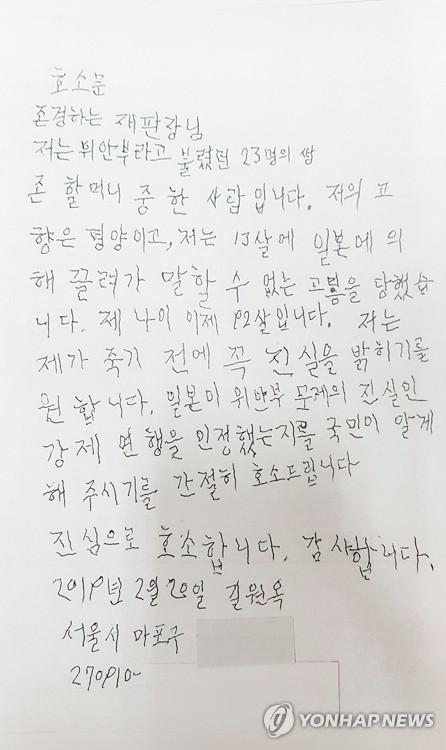 호소문
존경하는 재판장님
저는 위안부라고 불렸던 23명의 생
존 할머니 중 한 사람입니다. 저의 고
향은 평양이고, 저는 13살에 일본에 의
해 끌려가 말할 수 없는 고통을 당했습
니다. 제 나이 이제 92살입니다. 저는
제가 죽기 전에 꼭 진실을 밝히기를
원합니다. 일본이 위안부 문제의 진실인
강제 연행을 인정했는지를 국민이 알게
해 주시기를 간절히 호소드립니다
진심으로 호소합니다. 감사합니다.
2019년 2월 20일 길원옥
서울시 마포구
YONHAP NEWS